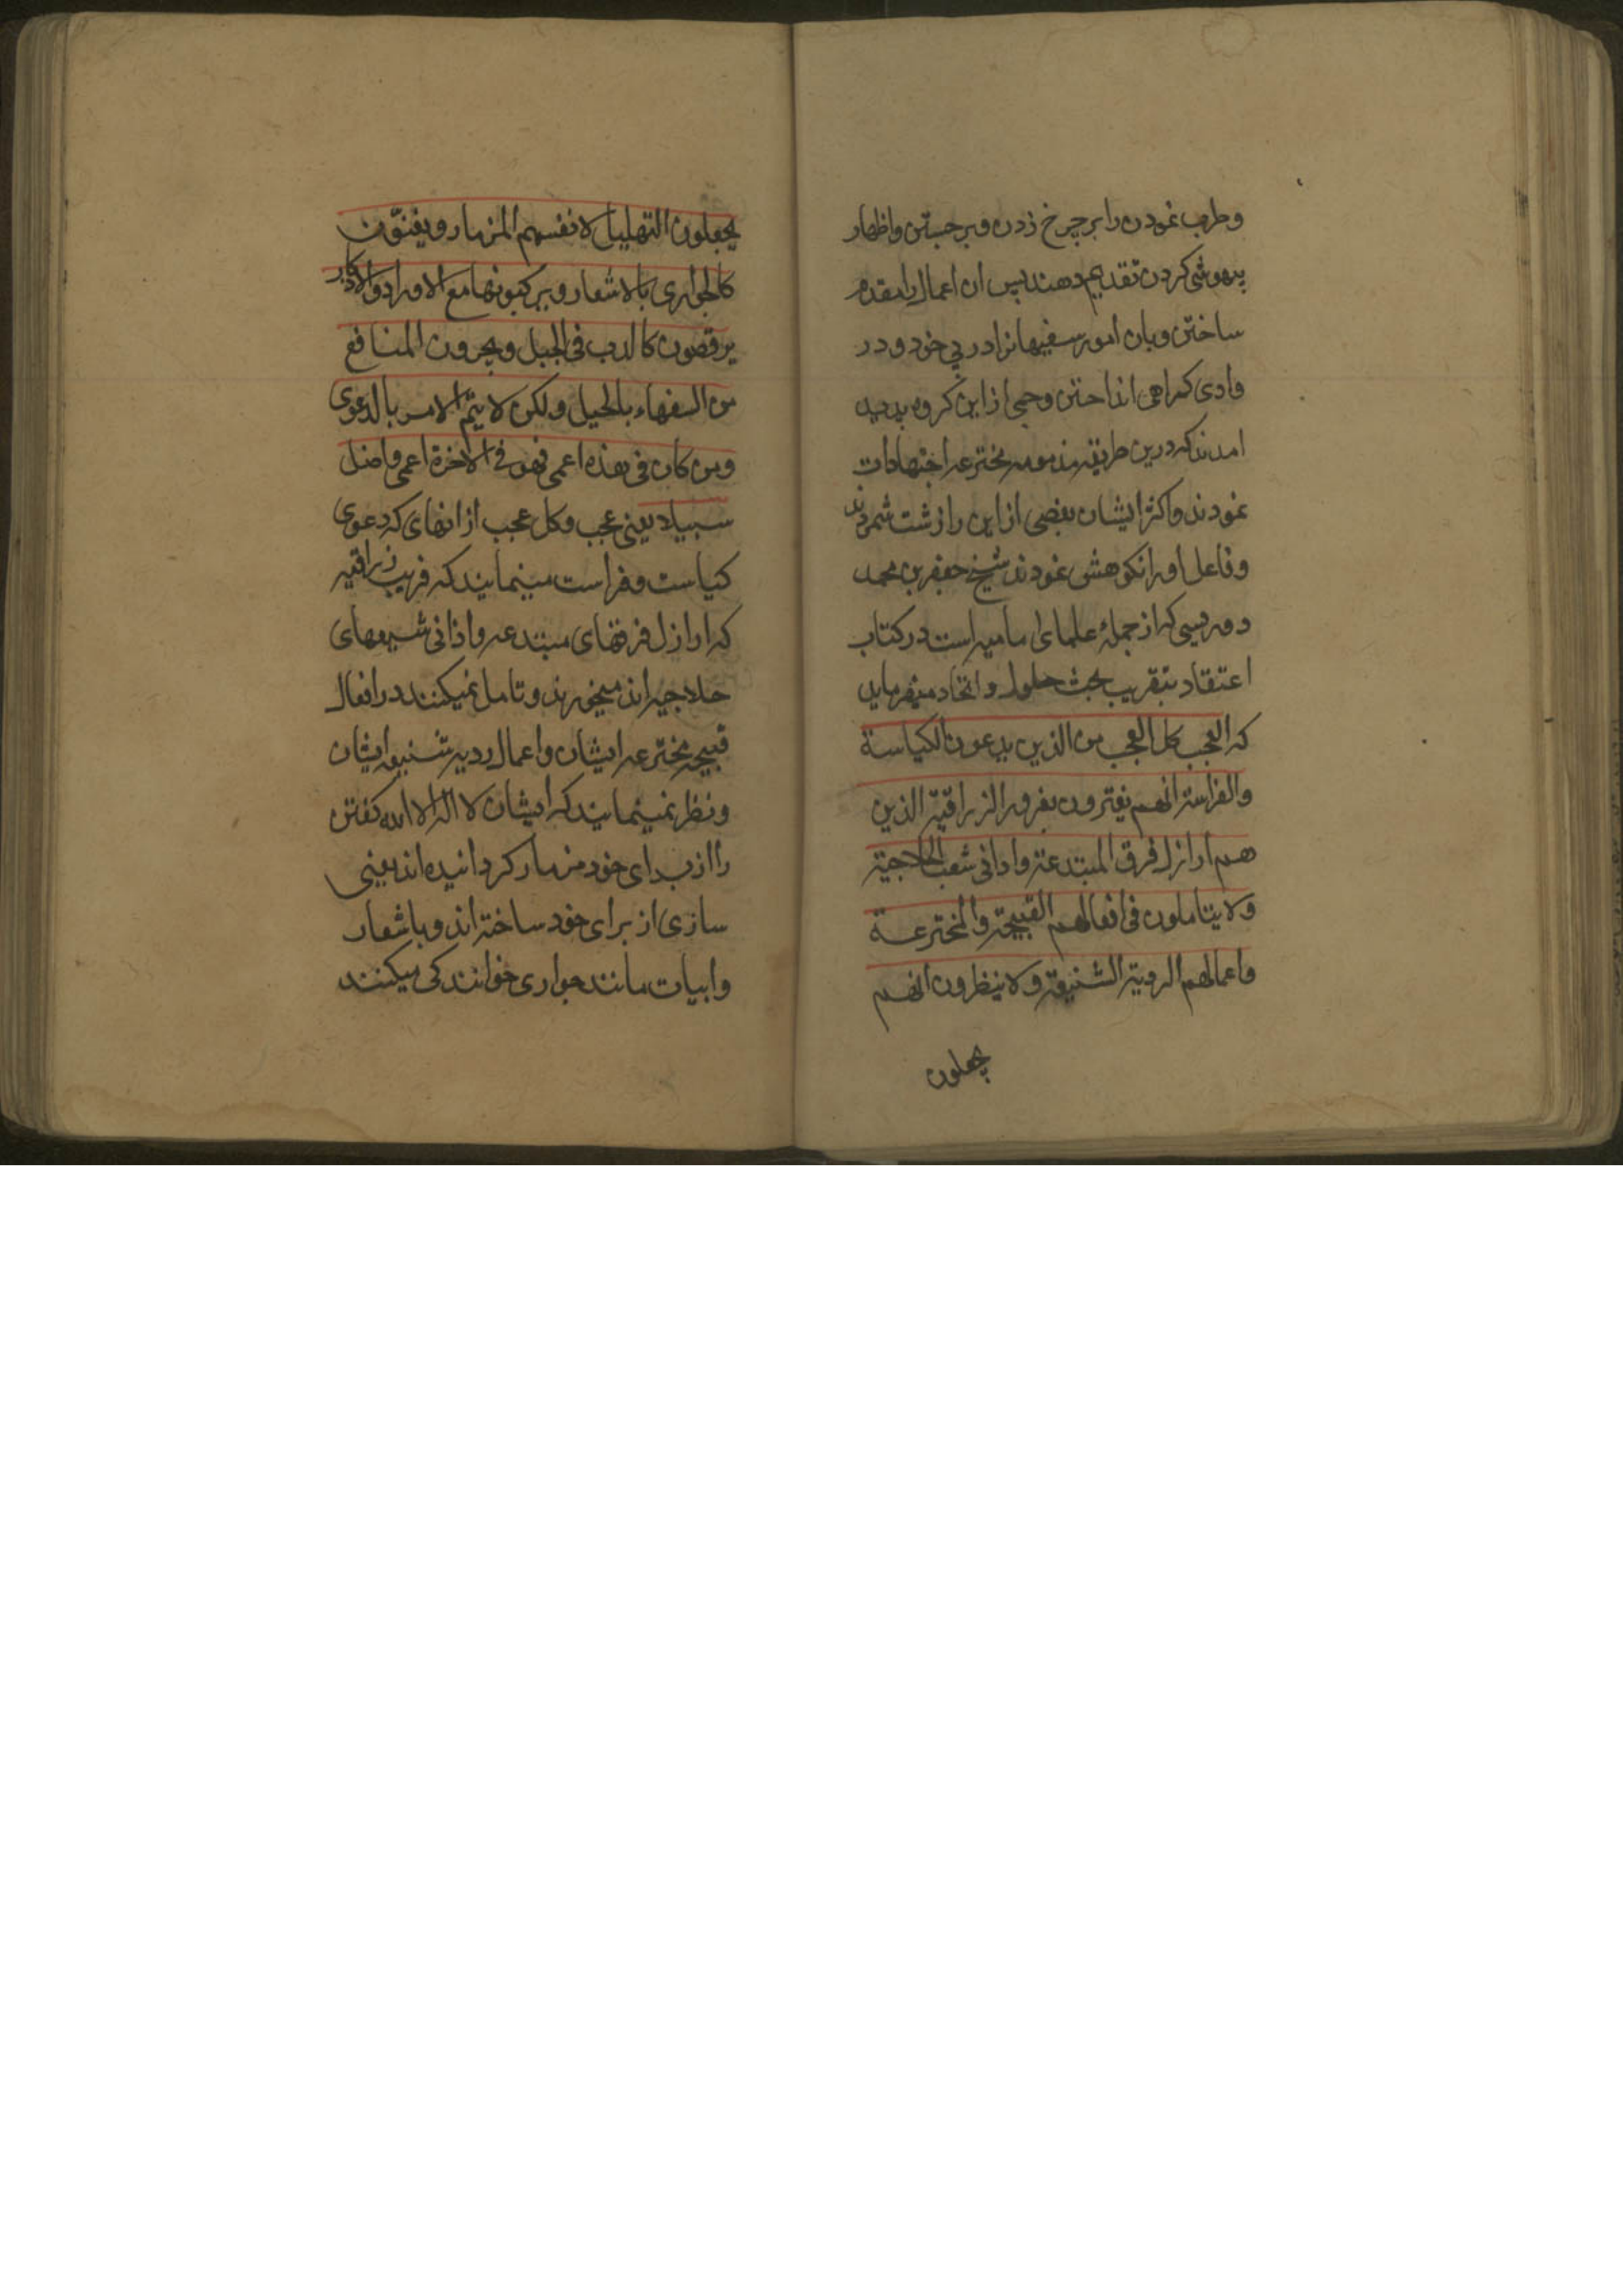 وطرب نمودن را بر چرخ زدن و برجستن و اظهار
بیهوشی کردن تقدیم دهند پس ان اعمال را مقدم
ساختن و بان امور سفیهانرا در پی خود و در
وادی کمراهی انداختن و جمعی از این کروه پدید
امدند که درین طریقه مذمومه مخترعه اجتهادات
نمودند و اکثر ایشان بعضی از این را زشت شمردند
و فاعل اورا نکوهش نمودند شیخ جعفر بن محمد
دوریستی که از جملهٔ علمای امامیه است در کتاب
اعتقاد بتقریب بحث حلول و اتحاد میفرماید
که العجب کل العجب من الذین یدعون الکیاسة
والفراسة انهم یغترون بغرور الزراقیّة الذین
هم اراذل فرق المبتدعة و ادانی شعب الحلاجیة
ولا یتاملون فی افعالهم القبیحة والمخترعة
واعمالهم الردیة الشنیعة ولا ینظرون انهم
یجعلون
یجعلون التهلیل لانفسهم المزمار و یغنّون
کالجواری بالاشعار و یرکبونها مع الاوراد والاذکار
یرقصون کالدب فی الجبل و یجرون المنافع
من السفهاء بالحیل ولکن لا یتمّ الامر بالدعوی
ومن کان فی هذه اعمی فهو فی الاخرة اعمی واضل
سبیلا یعنی عجب و کل عجب از انهای که دعوی
کیاست و فراست مینمایند که فریب زراقیه
که اراذل فرقهای مبتدعه و اذانی شیعهای
حلاجیه اند میخورند و تامل نمیکنند در افعال
قبیحه مخترعه ایشان و اعمال ردیه شنیعه ایشان
و نظر نمینمایند که ایشان لا اله الا الله کفتن
را از برای خود مزمار کردانیده اند یعنی
سازی از برای خود ساخته اند و باشعار
و ابیات مانند جواری خوانندکی میکنند